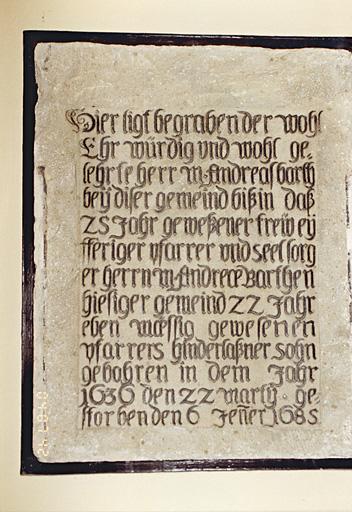 Hier ligt begraben der wohl
Ehr würdig vnd wohl ge-
lehrte herr m. Andreas barth
bey diser gemeind bißin daß
25 Jahr geweßener frewey
fferiger pfarrer vnd seel sorg
er herrn m. Andreæ Barthen
hiesiger gemeind 22 Jahr
eben mæssig gewesenen
pfarrers hinderlaßner sohn
gebohren in dem Jahr
1636 den 22 marty . ge-
storben den 6 Jeñer 1685